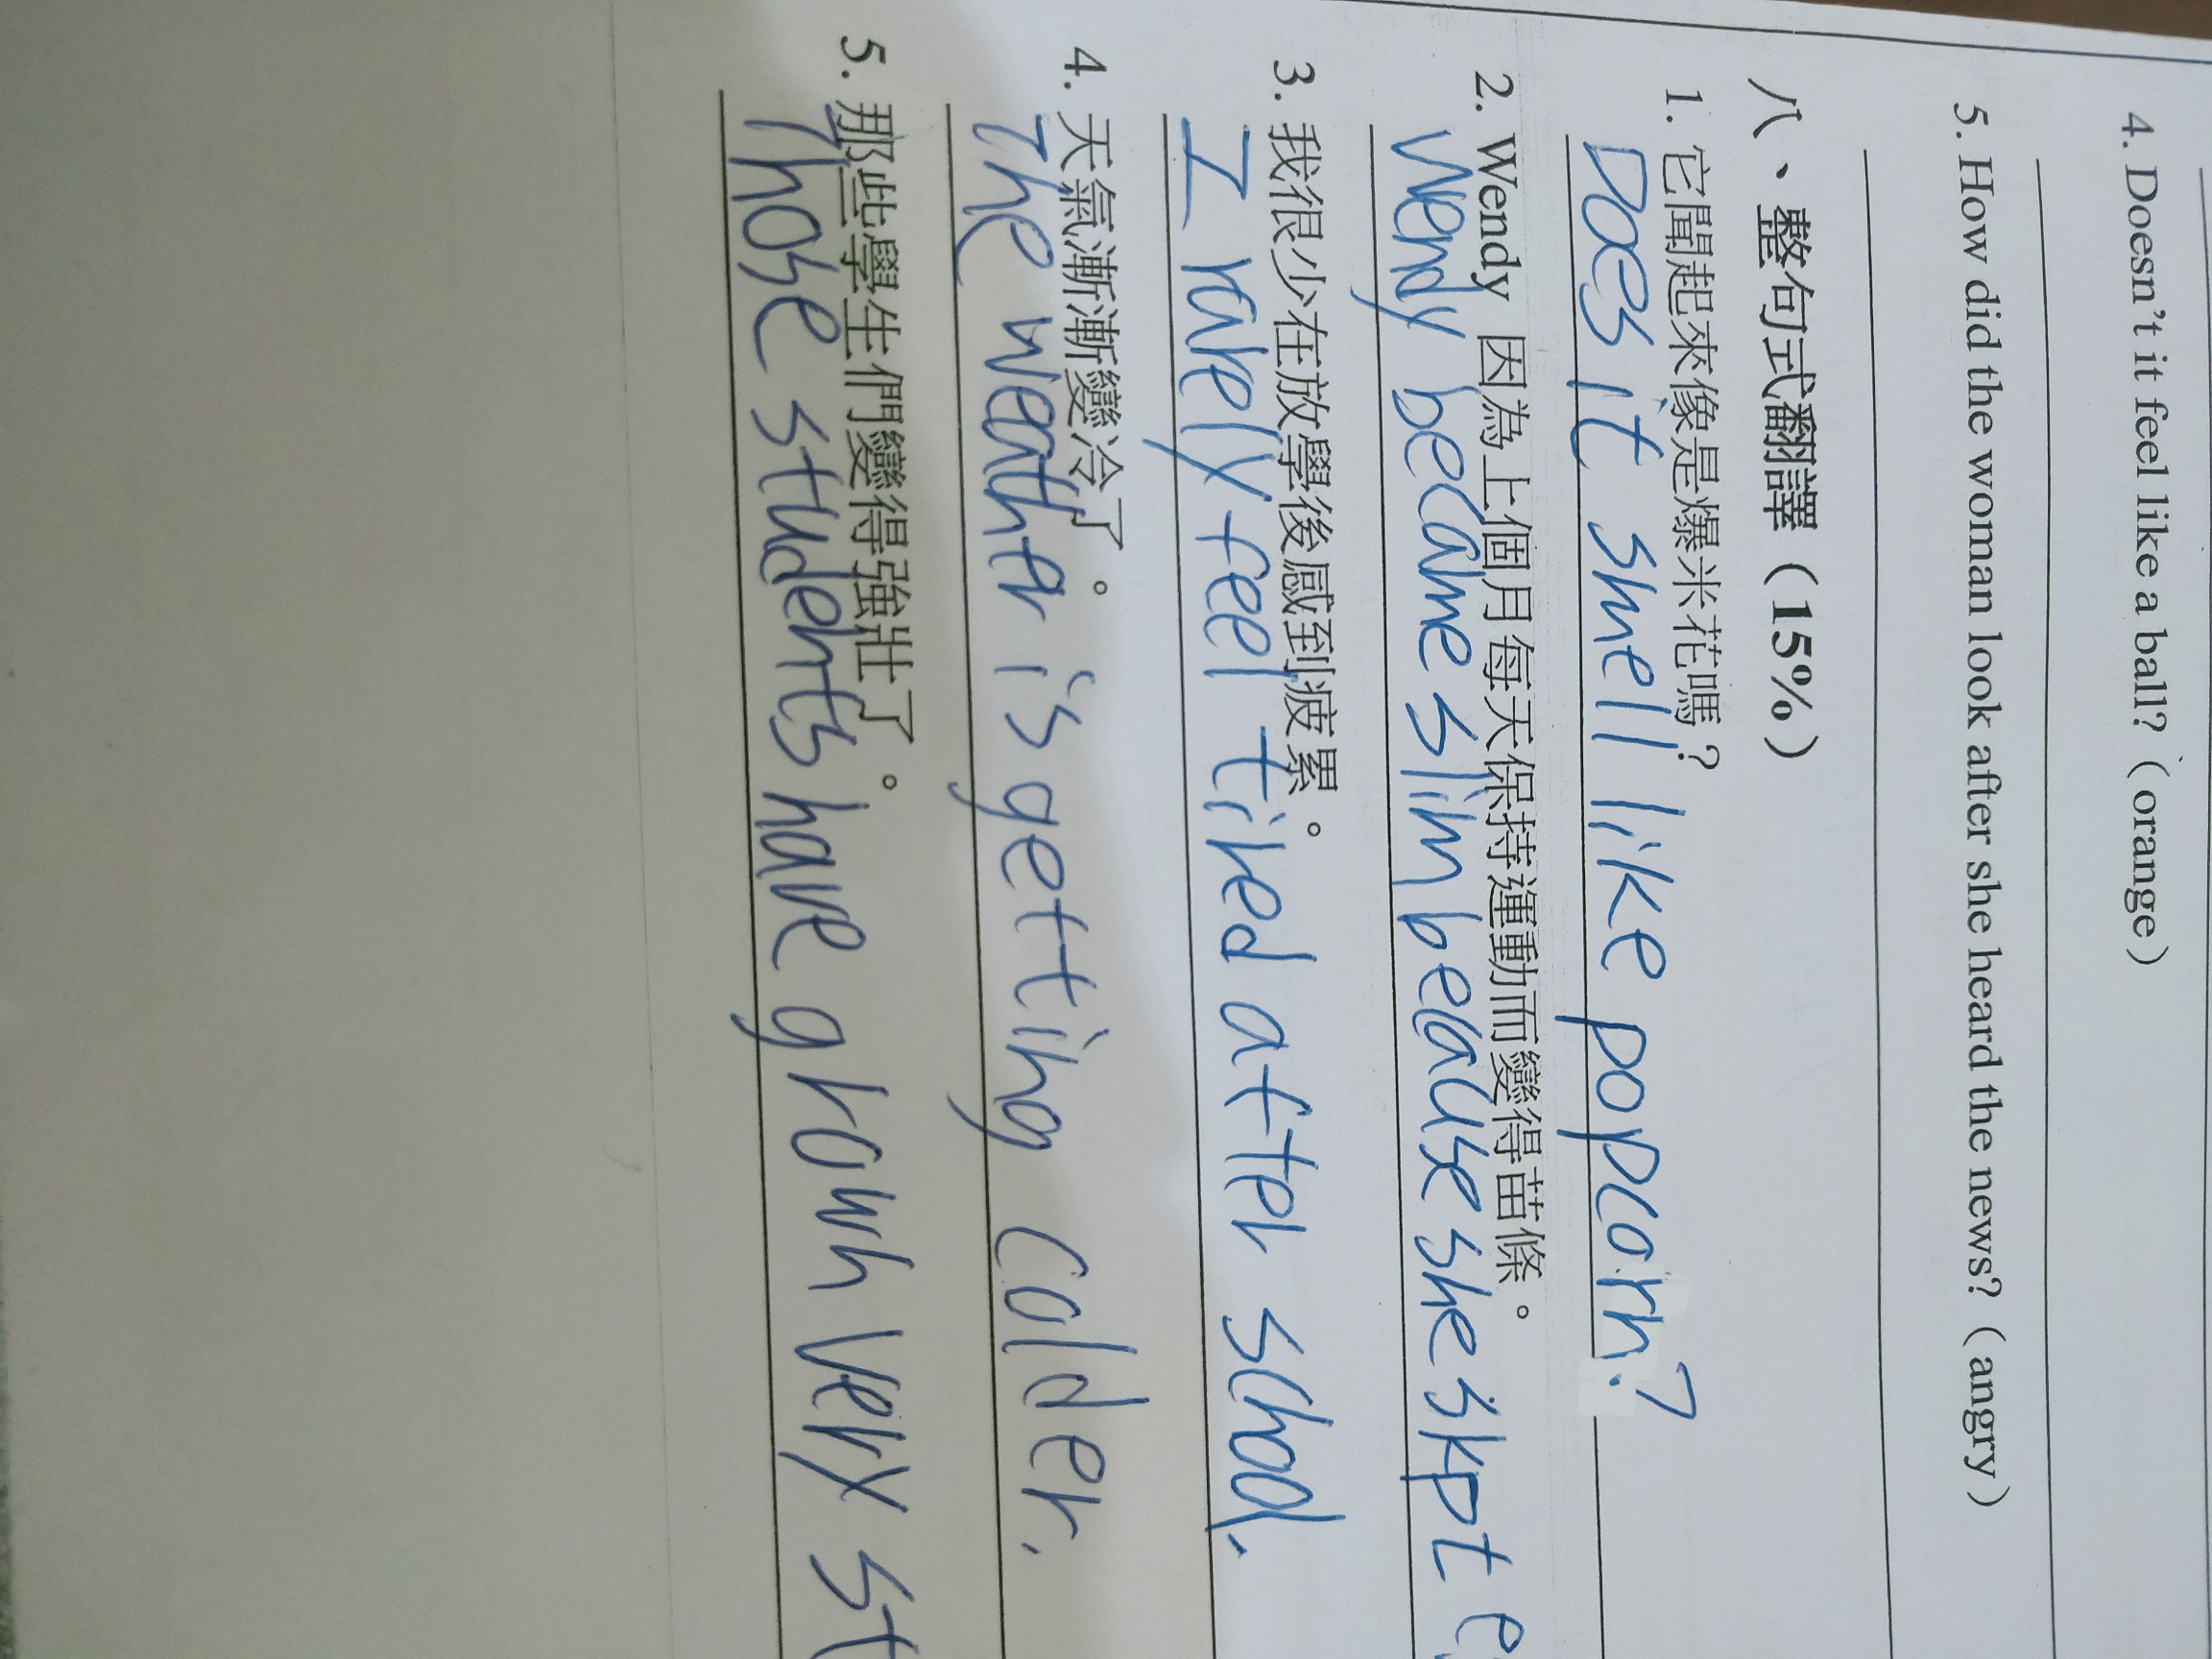 4. Doesn't it feel like a ball?（orange）
5. How did the woman look after she heard the news?（angry）
八、整句式翻譯（15%）
1. 它聞起來像是爆米花嗎？
Does it smell like popcorn?
2. Wendy 因為上個月每天保持運動而變得苗條。
Wendy became slim because she skpt
3. 我很少在放學後感到疲累。
I rarely feel tired after school.
4. 天氣漸漸變冷了。
The weather is getting colder.
5. 那些學生們變得強壯了。
Those students have grown very st